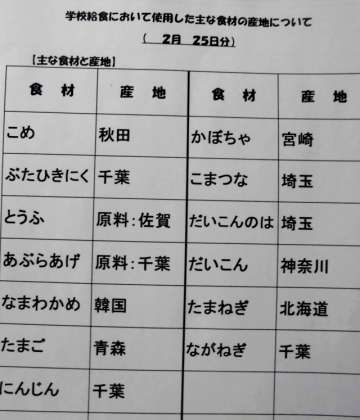 学校給食において使用した主な食材の産地について
( 2月 25日分)
【主な食材と産地】
食材 産地 食材 産地
こめ 秋田 かぼちゃ 宮崎
ぶたひきにく 千葉 こまつな 埼玉
とうふ 原料:佐賀 だいこんのは 埼玉
あぶらあげ 原料:千葉 だいこん 神奈川
なまわかめ 韓国 たまねぎ 北海道
たまご 青森 ながねぎ 千葉
にんじん 千葉